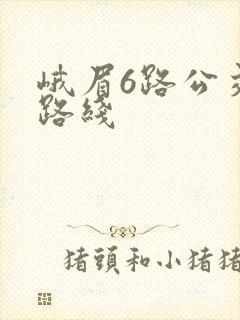 峨眉6路公交
路綫
猪頭和小猪猪